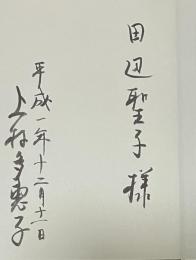 田辺聖子様
平成一年十二月十一日
上野多恵子